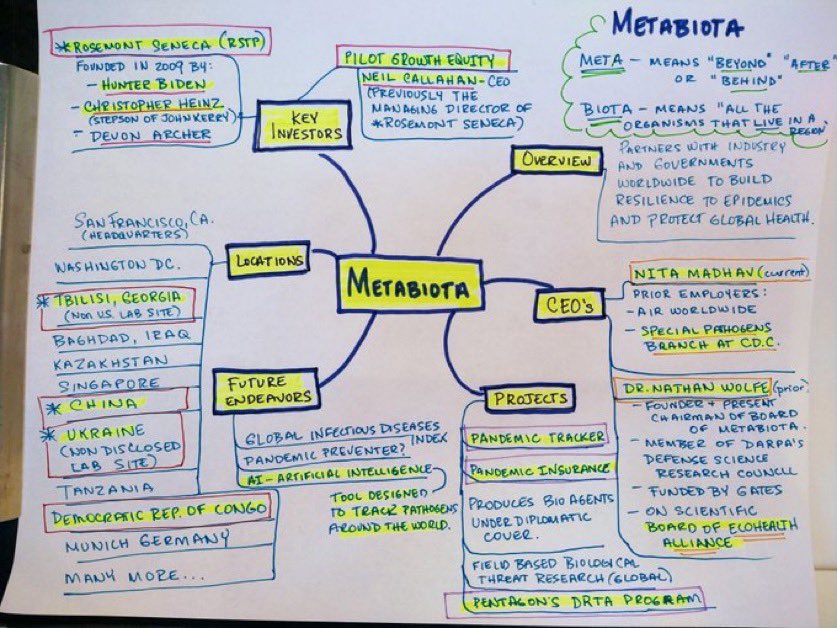 METABIOTA
META - MEANS "BEYOND" "AFTER"
OR "BEHIND"
BIOTA - MEANS "ALL THE
ORGANISMS THAT LIVE IN A
REGION"
* ROSEMONT SENECA (RSTP)
FOUNDED IN 2009 BY:
- HUNTER BIDEN
- CHRISTOPHER HEINZ
(STEPSON OF JOHN KERRY)
- DEVON ARCHER
PILOT GROWTH EQUITY
NEIL CALLAHAN - CEO
(PREVIOUSLY THE
MANAGING DIRECTOR OF
* ROSEMONT SENECA)
KEY
INVESTORS
OVERVIEW
PARTNERS WITH INDUSTRY
AND GOVERNMENTS
WORLDWIDE TO BUILD
RESILIENCE TO EPIDEMICS
AND PROTECT GLOBAL HEALTH.
LOCATIONS
SAN FRANCISCO, CA.
(HEADQUARTERS)
WASHINGTON DC.
* TBILISI, GEORGIA
(NON U.S. LAB SITE)
BAGHDAD, IRAQ
KAZAKHSTAN
SINGAPORE
* CHINA
* UKRAINE
(NON DISCLOSED
LAB SITE)
TANZANIA
DEMOCRATIC REP. OF CONGO
MUNICH GERMANY
MANY MORE...
METABIOTA
CEO'S
NITA MADHAV (current)
PRIOR EMPLOYERS:
- AIR WORLDWIDE
- SPECIAL PATHOGENS
BRANCH AT C.D.C.
DR. NATHAN WOLFE (prior)
- FOUNDER + PRESENT
CHAIRMAN OF BOARD
OF METABIOTA.
- MEMBER OF DARPA'S
DEFENSE SCIENCE
RESEARCH COUNCIL
- FUNDED BY GATES
- ON SCIENTIFIC
BOARD OF ECOHEALTH
ALLIANCE
FUTURE
ENDEAVORS
GLOBAL INFECTIOUS DISEASES
INDEX
PANDEMIC PREVENTER?
AI - ARTIFICIAL INTELLIGENCE
TOOL DESIGNED
TO TRACK PATHOGENS
AROUND THE WORLD.
PROJECTS
PANDEMIC TRACKER
PANDEMIC INSURANCE
PRODUCES BIO AGENTS
UNDER DIPLOMATIC
COVER.
FIELD BASED BIOLOGICAL
THREAT RESEARCH (GLOBAL)
PENTAGON'S DRTA PROGRAM